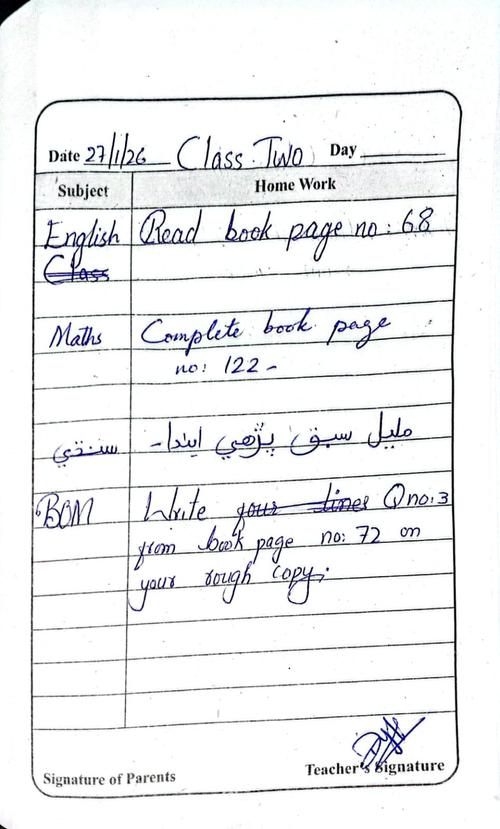 Date 27/1/26 Class Two Day
Subject Home Work
English Read book page no: 68
Class
Maths Complete book page
no: 122 -
سنڌي مليل سبق پڙهي ايندا-
BOM Write your lines Q no: 3
from book page no: 72 on
your rough copy.
Signature of Parents Teacher's Signature